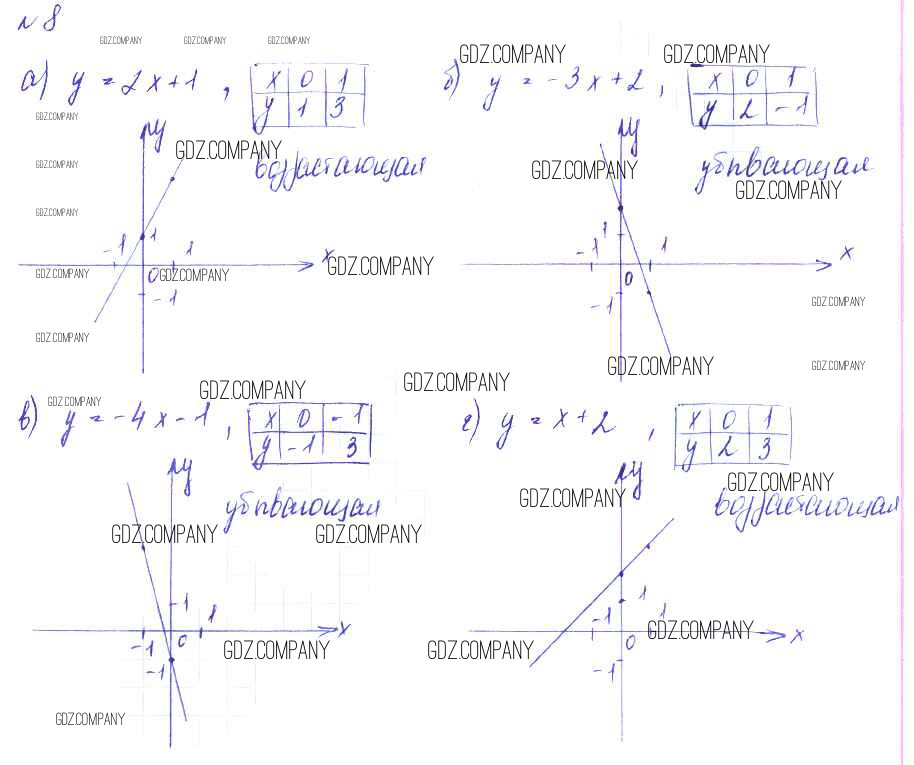 № 8
GDZ.COMPANY GDZ.COMPANY GDZ.COMPANY
а) y = 2x+1 , x 0 1
y 1 3
GDZ.COMPANY
y
GDZ.COMPANY
GDZ.COMPANY возрастающая
GDZ.COMPANY
-1 1 1
x GDZ.COMPANY
GDZ.COMPANY 0 GDZ.COMPANY
-1
GDZ.COMPANY
GDZ.COMPANY GDZ.COMPANY
б) y = -3x+2 , x 0 1
y 2 -1
y
GDZ.COMPANY убывающая
GDZ.COMPANY
1
-1 1 x
0
-1 GDZ.COMPANY
GDZ.COMPANY GDZ.COMPANY
GDZ.COMPANY GDZ.COMPANY GDZ.COMPANY
в) y = -4x-1 , x 0 -1
y -1 3
y
убывающая
GDZ.COMPANY GDZ.COMPANY
1 1
x
-1 0
-1 GDZ.COMPANY
GDZ.COMPANY
г) y = x+2 , x 0 1
y 2 3
y
GDZ.COMPANY
GDZ.COMPANY возрастающая
1
-1 1
GDZ.COMPANY x
GDZ.COMPANY 0
-1